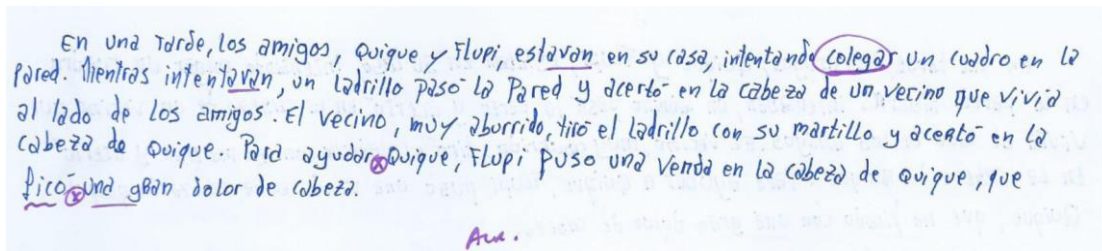 En una tarde, los amigos, Quique y Flupi, estavan en su casa, intentando colegar un cuadro en la
pared. Mientras intentavan, un ladrillo pasó la pared y acertó en la cabeza de un vecino que vivía
al lado de los amigos. El vecino, muy aburrido, tiró el ladrillo con su martillo y acertó en la
cabeza de Quique. Para ayudar Quique, Flupi puso una venda en la cabeza de Quique, que
ficó una gran dolor de cabeza.